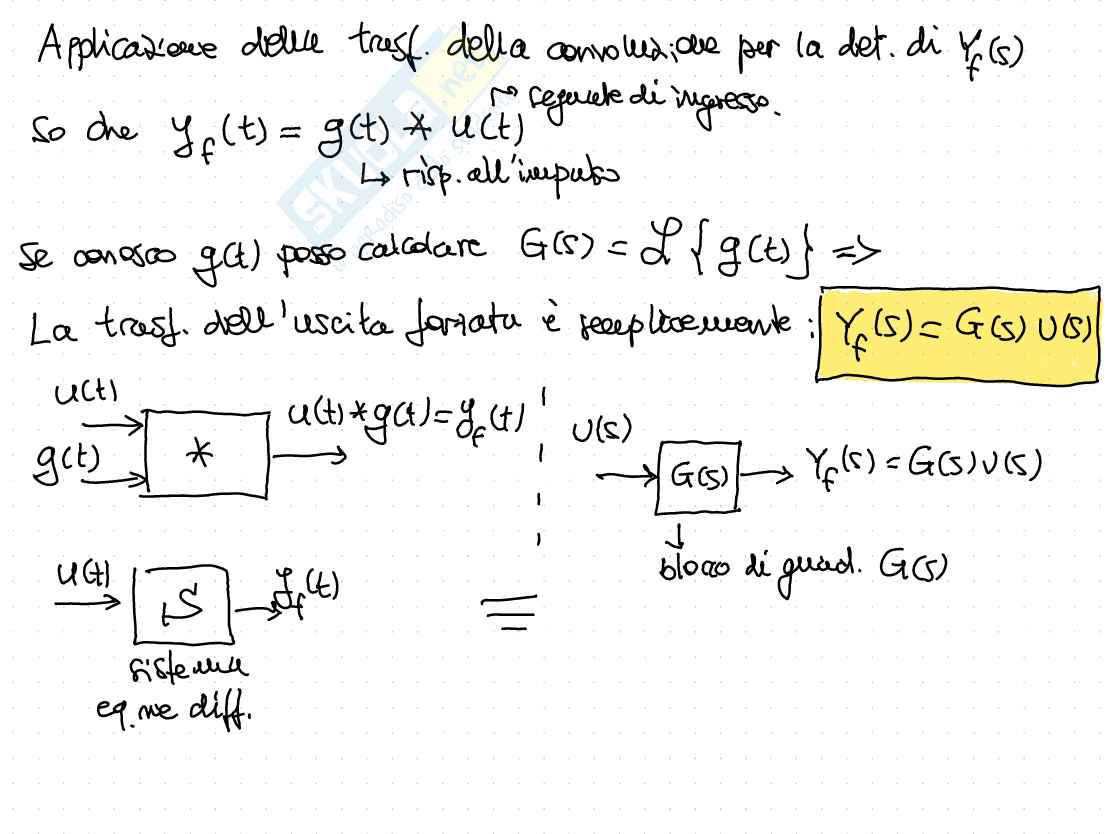 Applicazione della trasf. della convoluzione per la det. di Y_f(s)
↱ segnale di ingresso.
So che y_f(t) = g(t) * u(t)
↳ risp. all'impulso
Se conosco g(t) posso calcolare G(s) = ℒ{g(t)} =>
La trasf. dell'uscita forzata è semplicemente: Y_f(s) = G(s) U(s)
u(t)
g(t)
*
u(t)*g(t)=y_f(t)
U(s)
G(s)
Y_f(s) = G(s)U(s)
blocco di guad. G(s)
u(t)
S
y_f(t)
≡
sistema
eq.ne diff.
SKUOLA.net